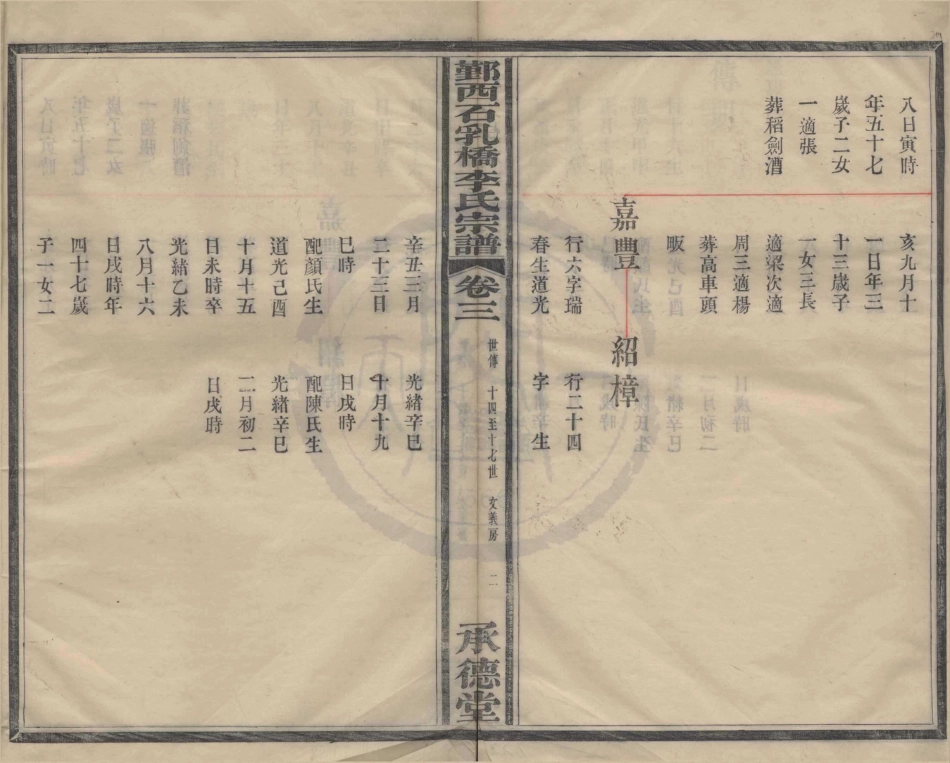 八日寅時
年五十七
歲子二女
一適張
葬稻劍漕
亥九月十
一日年三
十三歲子
一女三長
適梁次適
周三適楊
葬高車頭
畈
嘉豐
行六字瑞
春生道光
紹樟
行二十四
字　生
鄞西石乳橋李氏宗譜
卷三
世傳　十四至十七世　文義房　二
承德堂
辛丑三月
二十三日
巳時
配顏氏生
道光己酉
十月十五
日未時卒
光緒乙未
八月十六
日戌時年
四十七歲
子一女二
光緒辛巳
十月十九
日戌時
配陳氏生
光緒辛巳
二月初二
日戌時